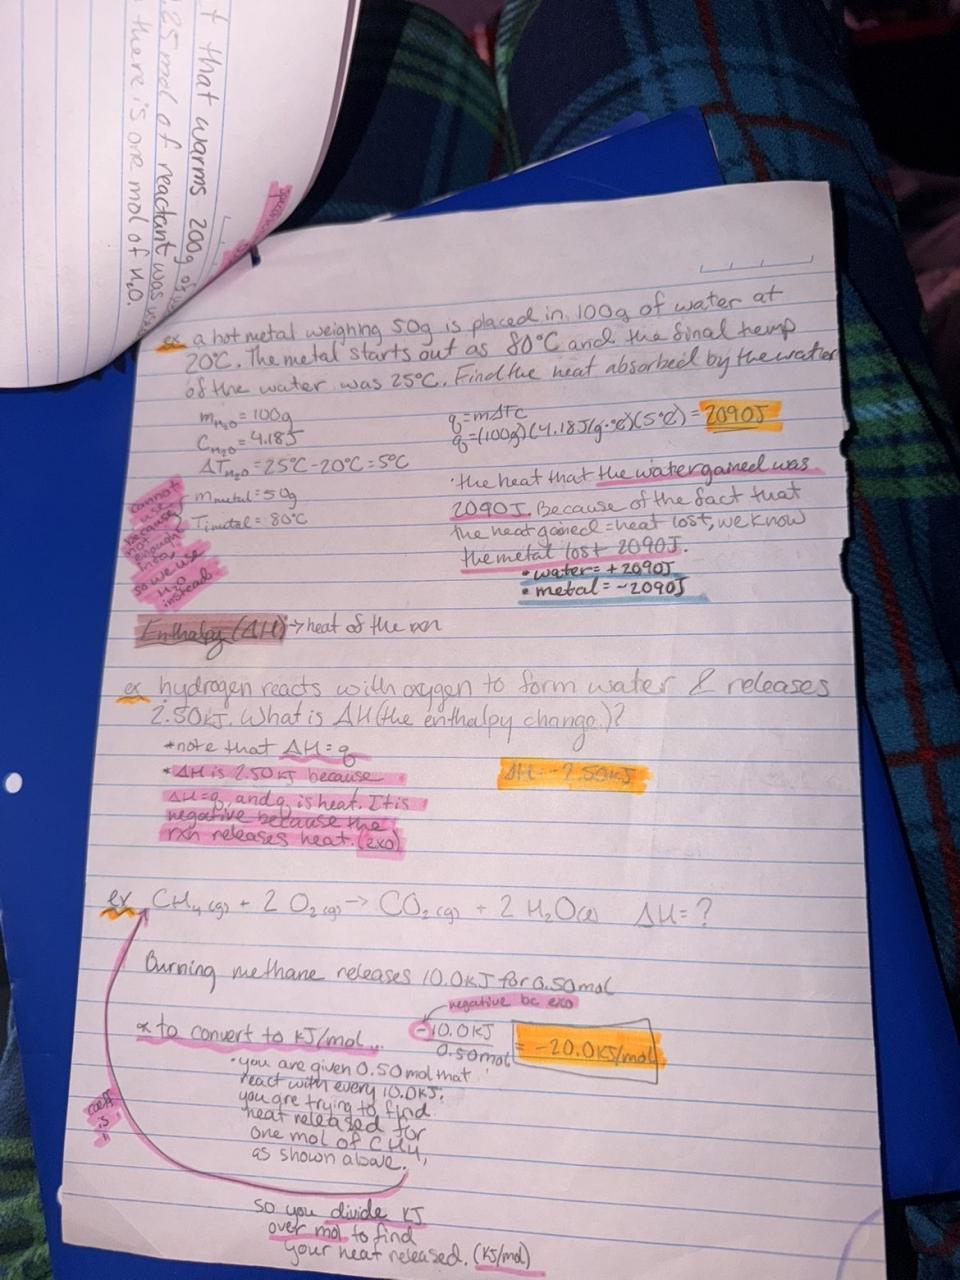 t that warms 200g of
.25 mol of reactant was
there is one mol of H₂O.
ex a hot metal weighing 50g is placed in 100g of water at
20°C. The metal starts out as 80°C and the final temp
of the water was 25°C. Find the heat absorbed by the water
mH₂O = 100g
CH₂O = 4.18J
ΔTH₂O = 25°C - 20°C = 5°C
mmetal = 50g
Timetal = 80°C
cannot
use
because
not
enough
info,
so we use
H₂O
instead
q = mΔTC
q = (100g)(4.18J/g·°C)(5°C) = 2090J
·the heat that the water gained was
2090J. Because of the fact that
the heat gained = heat lost, we know
the metal lost 2090J.
• water = +2090J
• metal = -2090J
Enthalpy (ΔH) → heat of the rxn
ex hydrogen reacts with oxygen to form water & releases
2.50kJ. What is ΔH (the enthalpy change)?
*note that ΔH = q
*ΔH is 2.50 KJ because
ΔH = q, and q is heat. It is
negative because the
rxn releases heat. (exo)
ΔH = -2.50KJ
ex CH₄(g) + 2 O₂(g) → CO₂(g) + 2 H₂O(l) ΔH = ?
Burning methane releases 10.0KJ for 0.50mol
negative bc exo
* to convert to KJ/mol...
-10.0KJ
0.50mol
= -20.0KJ/mol
• you are given 0.50 mol that
react with every 10.0KJ.
you are trying to find
heat released for
one mol of CH₄,
as shown above.
coeff
is
1
so you divide KJ
over mol to find
your heat released. (KJ/mol)